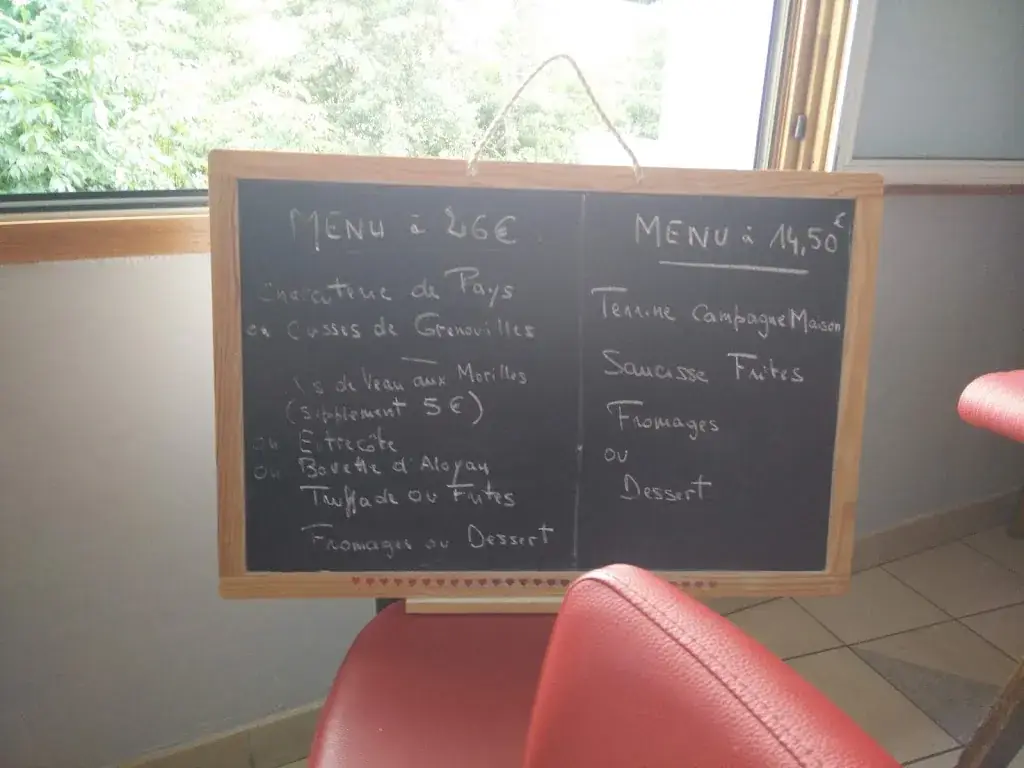 MENU à 26€
Charcuterie de Pays
ou Cuisses de Grenouilles
de Veau aux Morilles
(supplement 5€)
ou Entrecôte
ou Bavette d'Aloyau
Truffade ou Frites
Fromages ou Dessert
MENU à 14,50€
Terrine Campagne Maison
Saucisse Frites
Fromages
ou
Dessert